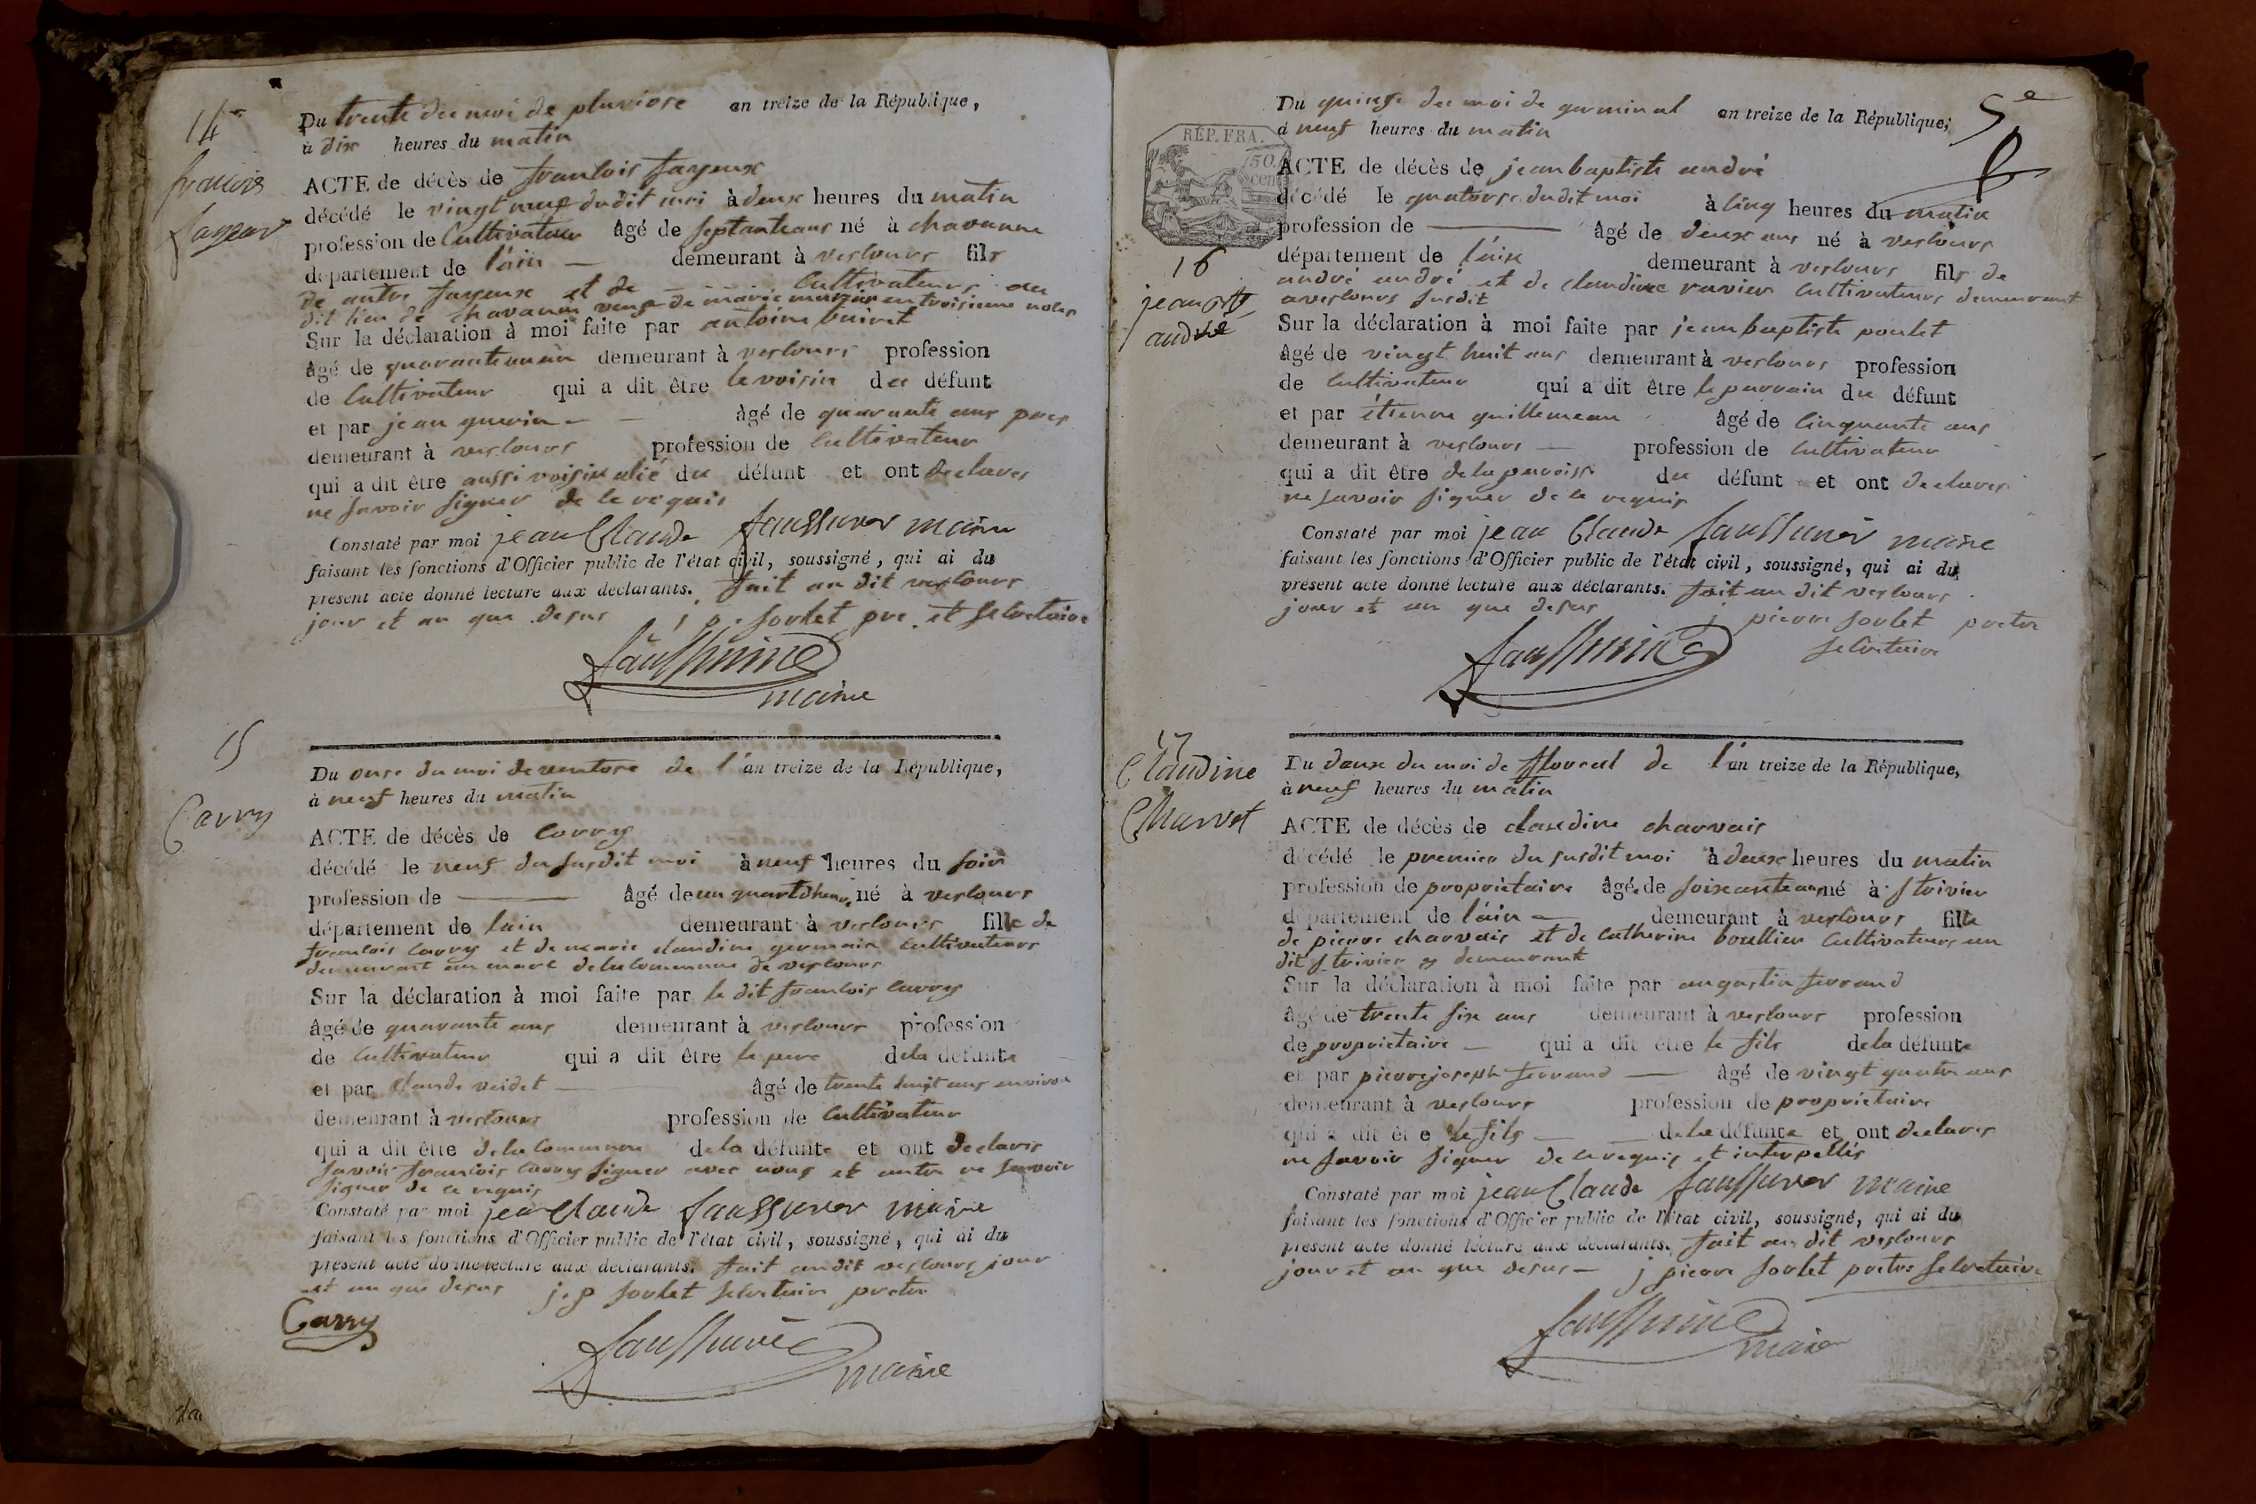 14e
françois
fayeux
Du trente du moi de pluviose an treize de la République,
à dix heures du matin
ACTE de décès de francois fayeux
décédé le vingt neuf dudit moi à deux heures du matin
profession de Cultivateur âgé de septante ans né à chavanne
département de l'ain demeurant à verlours fils
de autre fayeux et de cultivateurs au
dit lieu de chavanne veuf de marie en troisieme noces
Sur la déclaration à moi faite par antoine buiret
âgé de quarante un an demeurant à verlours profession
de Cultivateur qui a dit être le voisin du défunt
et par jean guerin âgé de quarante ans
demeurant à verlours profession de Cultivateur
qui a dit être aussi voisin alié du défunt et ont declares
ne savoir signer de ce requis
Constaté par moi jean Claude faussurier maire
faisant les fonctions d'Officier public de l'état civil, soussigné, qui ai du
présent acte donné lecture aux déclarants. fait au dit verlours
jour et an que desus j p soulet pre et secretaire
faussurié
maire
15
Carry
Du onse du moi de ventose de l'an treize de la République,
à neuf heures du matin
ACTE de décès de Carry
décédé le neuf du susdit moi à neuf heures du soir
profession de âgé de un quart dheure né à verlours
département de lain demeurant à verlours fille de
francois Carry et de marie claudine germain cultivateurs
demeurant au de la Commune de verlours
Sur la déclaration à moi faite par le dit francois Carry
âgé de quarante ans demeurant à verlours profession
de Cultivateur qui a dit être le pere dela défunte
et par claude veidet âgé de trente huit ans environ
demeurant à verlours profession de Cultivateur
qui a dit être dela Commune dela défunte et ont declares
savoir francois Carry signer avec nous et autre ne savoir
signer de ce requis
Constaté par moi jean claude faussurier maire
faisant les fonctions d'Officier public de l'état civil, soussigné, qui ai du
présent acte donné lecture aux déclarants. fait audit verlours jour
et an que desus j p soulet secretaire pretre
Carry
faussurié
maire
5e
RÉP. FRA.
50
cen
16
jean bte
andré
Du quinse du moi de germinal an treize de la République,
à neuf heures du matin
ACTE de décès de jean baptiste andré
décédé le quatorse dudit moi à cinq heures du matin
profession de âgé de deux ans né à verlours
département de l'ain demeurant à verlours fils de
andré andré et de claudine ravier Cultivateurs demeurant
a verlours susdit
Sur la déclaration à moi faite par jean baptiste poulet
âgé de vingt huit ans demeurant à verlours profession
de Cultivateur qui a dit être le parrain du défunt
et par étienne guillemeau âgé de cinquante ans
demeurant à verlours profession de Cultivateur
qui a dit être dela paroisse du défunt et ont declares
ne savoir signer de ce requis
Constaté par moi jean Claude faussurier maire
faisant les fonctions d'Officier public de l'état civil, soussigné, qui ai du
présent acte donné lecture aux déclarants. fait au dit verlours
jour et an que desus j pierre soulet pretre
secretaire
faussurié
17
Claudine
Charvet
Du deux du moi de floreal de l'an treize de la République,
à neuf heures du matin
ACTE de décès de claudine charvais
décédé le premier du susdit moi à deux heures du matin
profession de proprietaire âgée de soixante ans né à s trivier
département de l'ain demeurant à verlours fille
de pierre charvais et de Catherine boullier Cultivateurs au
dit s trivier y demeurant
Sur la déclaration à moi faite par augustin ferrand
âgé de trente six ans demeurant à verlours profession
de proprietaire qui a dit être le fils dela défunte
et par pierre joseph ferrand âgé de vingt quatre ans
demeurant à verlours profession de proprietaire
qui a dit être le fils dela défunte et ont declares
ne savoir signer de ce requis et interpellés
Constaté par moi jean Claude faussurier maire
faisant les fonctions d'Officier public de l'état civil, soussigné, qui ai du
présent acte donné lecture aux déclarants. fait au dit verlours
jour et an que desus j pierre soulet pretre secretaire
faussurié
maire